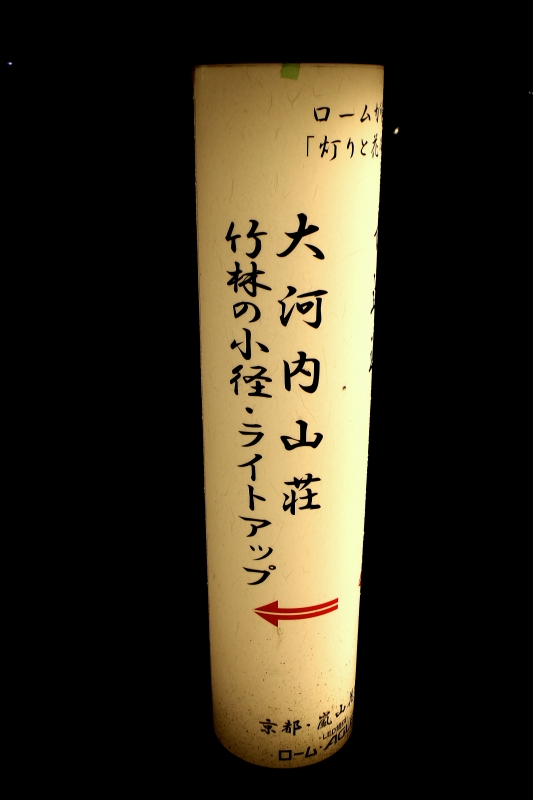 ロームが
「灯りと花
大河内山荘
竹林の小径・ライトアップ
京都・嵐山
LED照明
ローム・AGLE